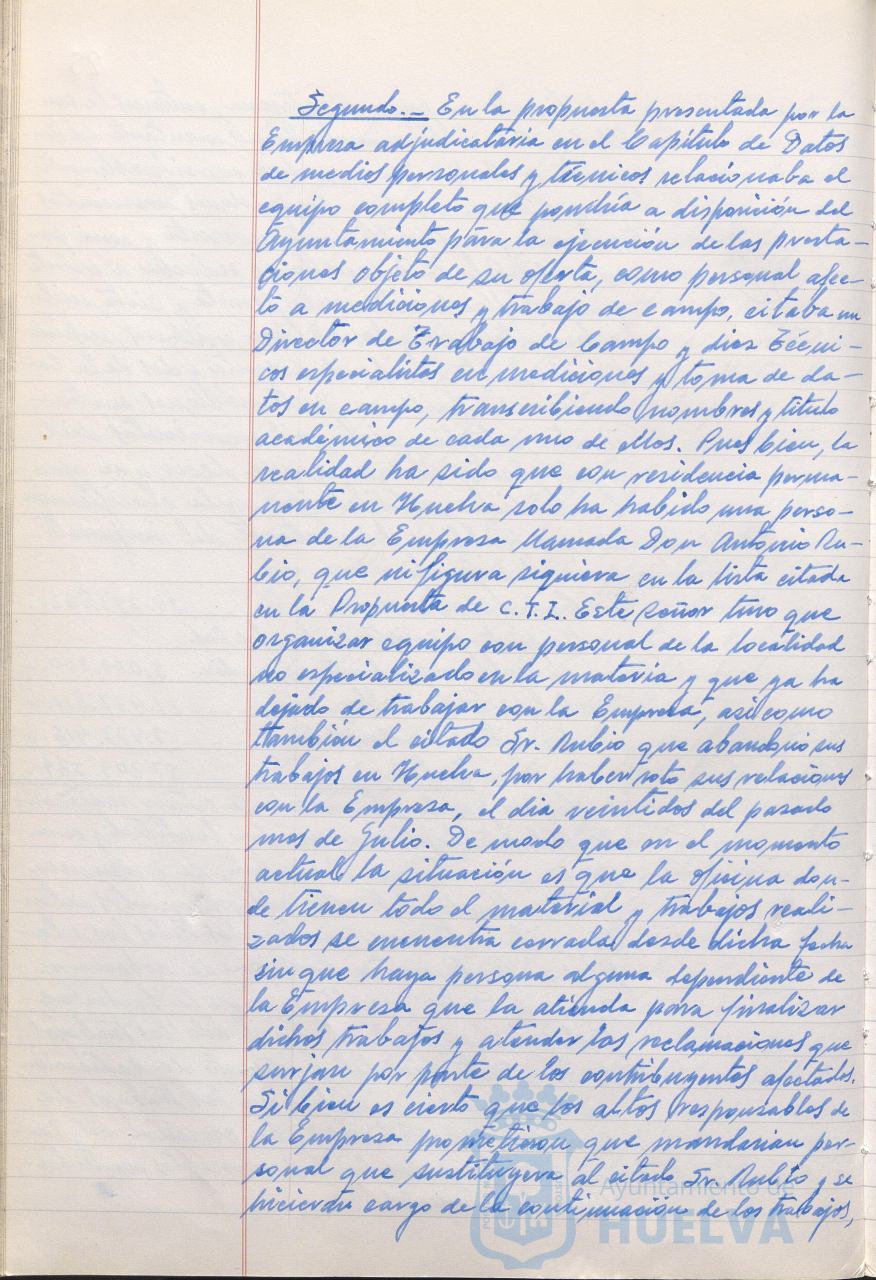 Segundo.- En la propuesta presentada por la
Empresa adjudicataria en el Capítulo de Datos
de medios personales y técnicos relacionaba el
equipo completo que pondría a disposición del
Ayuntamiento para la ejecución de las presta-
ciones objeto de su oferta, como personal afec-
to a mediciones y trabajo de campo, citaba un
Director de Trabajo de Campo y diez Técni-
cos especialistas en mediciones y toma de da-
tos en campo, transcribiendo nombres y título
académico de cada uno de ellos. Pues bien, la
realidad ha sido que con residencia perma-
nente en Huelva solo ha habido una perso-
na de la Empresa llamada Don Antonio Ru-
bio, que ni figura siquiera en la lista citada
en la Propuesta de C.T.I. Este señor tuvo que
organizar equipo con personal de la localidad
no especializado en la materia y que ya ha
dejado de trabajar con la Empresa, así como
también el citado Sr. Rubio que abandonó sus
trabajos en Huelva, por haber roto sus relaciones
con la Empresa, el dia veintidos del pasado
mes de Julio. De modo que en el momento
actual la situación es que la oficina don-
de tienen todo el material y trabajos reali-
zados se encuentra cerrada desde dicha fecha
sin que haya persona alguna dependiente de
la Empresa que la atienda para finalizar
dichos trabajos y atender las reclamaciones que
surjan por parte de los contribuyentes afectados.
Si bien es cierto que los altos responsables de
la Empresa prometieron que mandarian per-
sonal que sustituyera al citado Sr. Rubio y se
hicieran cargo de la continuación de los trabajos,
Ayuntamiento de
HUELVA